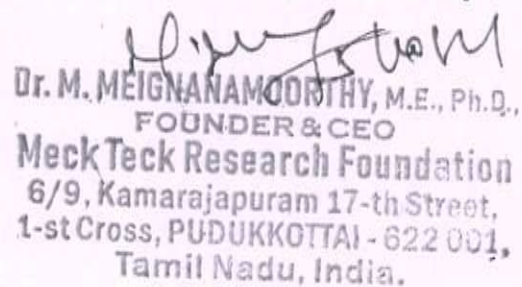 Dr. M. MEIGNANAMOORTHY, M.E., Ph.D.,
FOUNDER & CEO
Meck Teck Research Foundation
6/9, Kamarajapuram 17-th Street,
1-st Cross, PUDUKKOTTAI - 622 001,
Tamil Nadu, India.